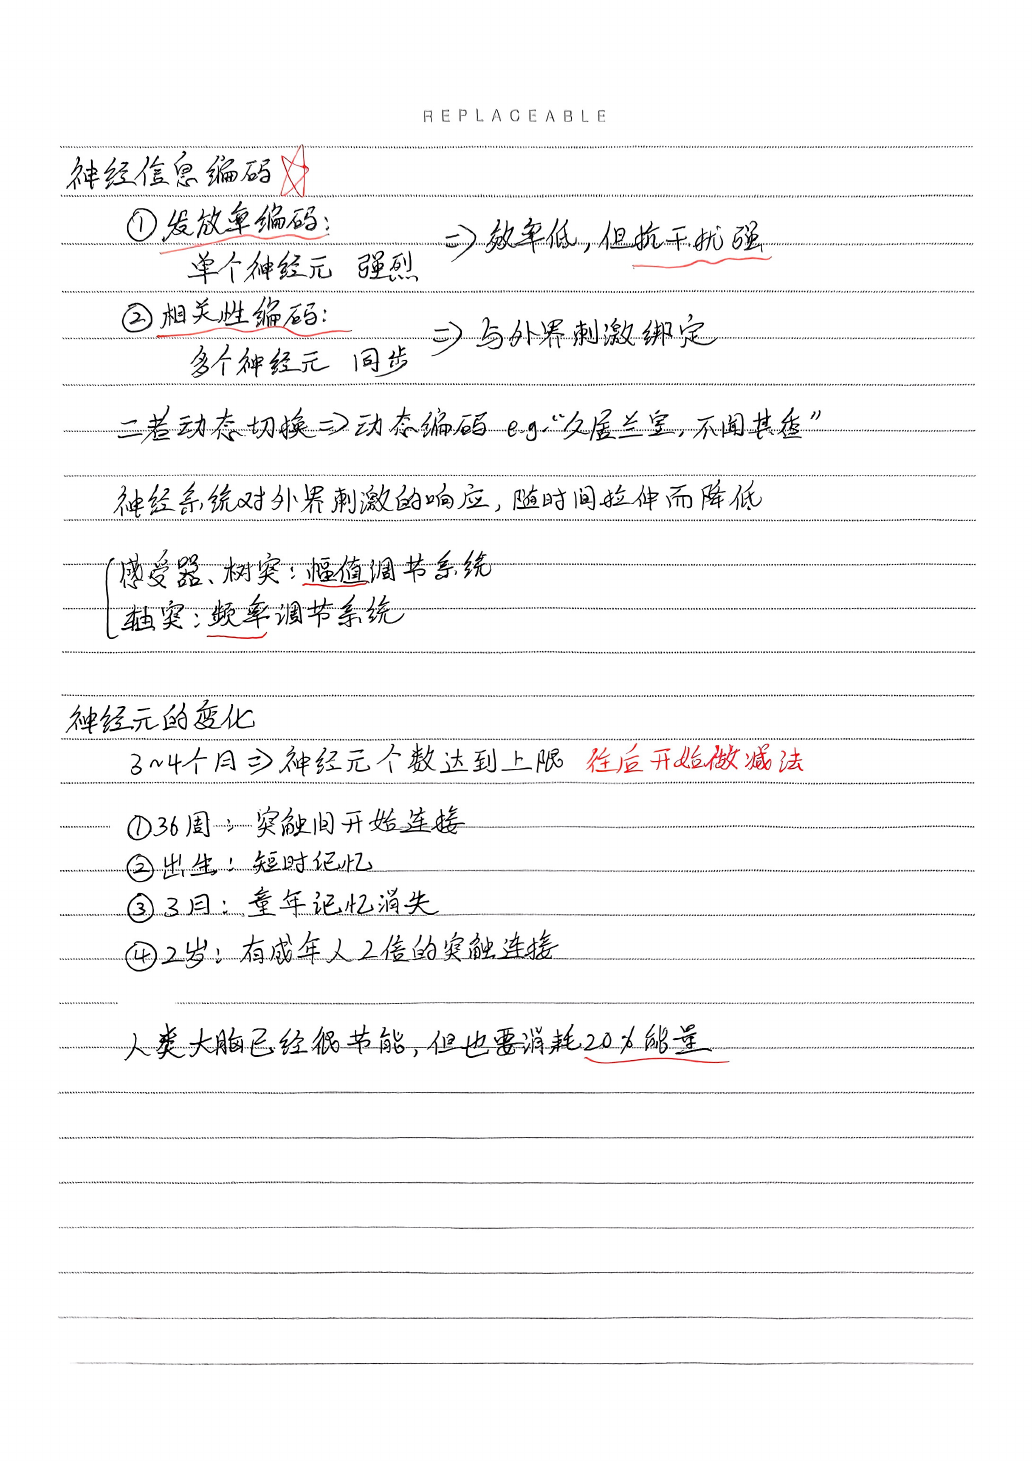 REPLACEABLE
神经信息编码
①发放率编码:
单个神经元 强烈
⇒效率低,但抗干扰强
②相关性编码:
多个神经元 同步
⇒与外界刺激绑定
二者动态切换⇒动态编码 e.g.“久居兰室,不闻其香”
神经系统对外界刺激的响应,随时间拉伸而降低
感受器、树突:幅值调节系统
轴突:频率调节系统
神经元的变化
3~4个月⇒神经元个数达到上限 往后开始做减法
①36周:突触间开始连接
②出生:短时记忆
③3月:童年记忆消失
④2岁:有成年人2倍的突触连接
人类大脑已经很节能,但也要消耗20%能量